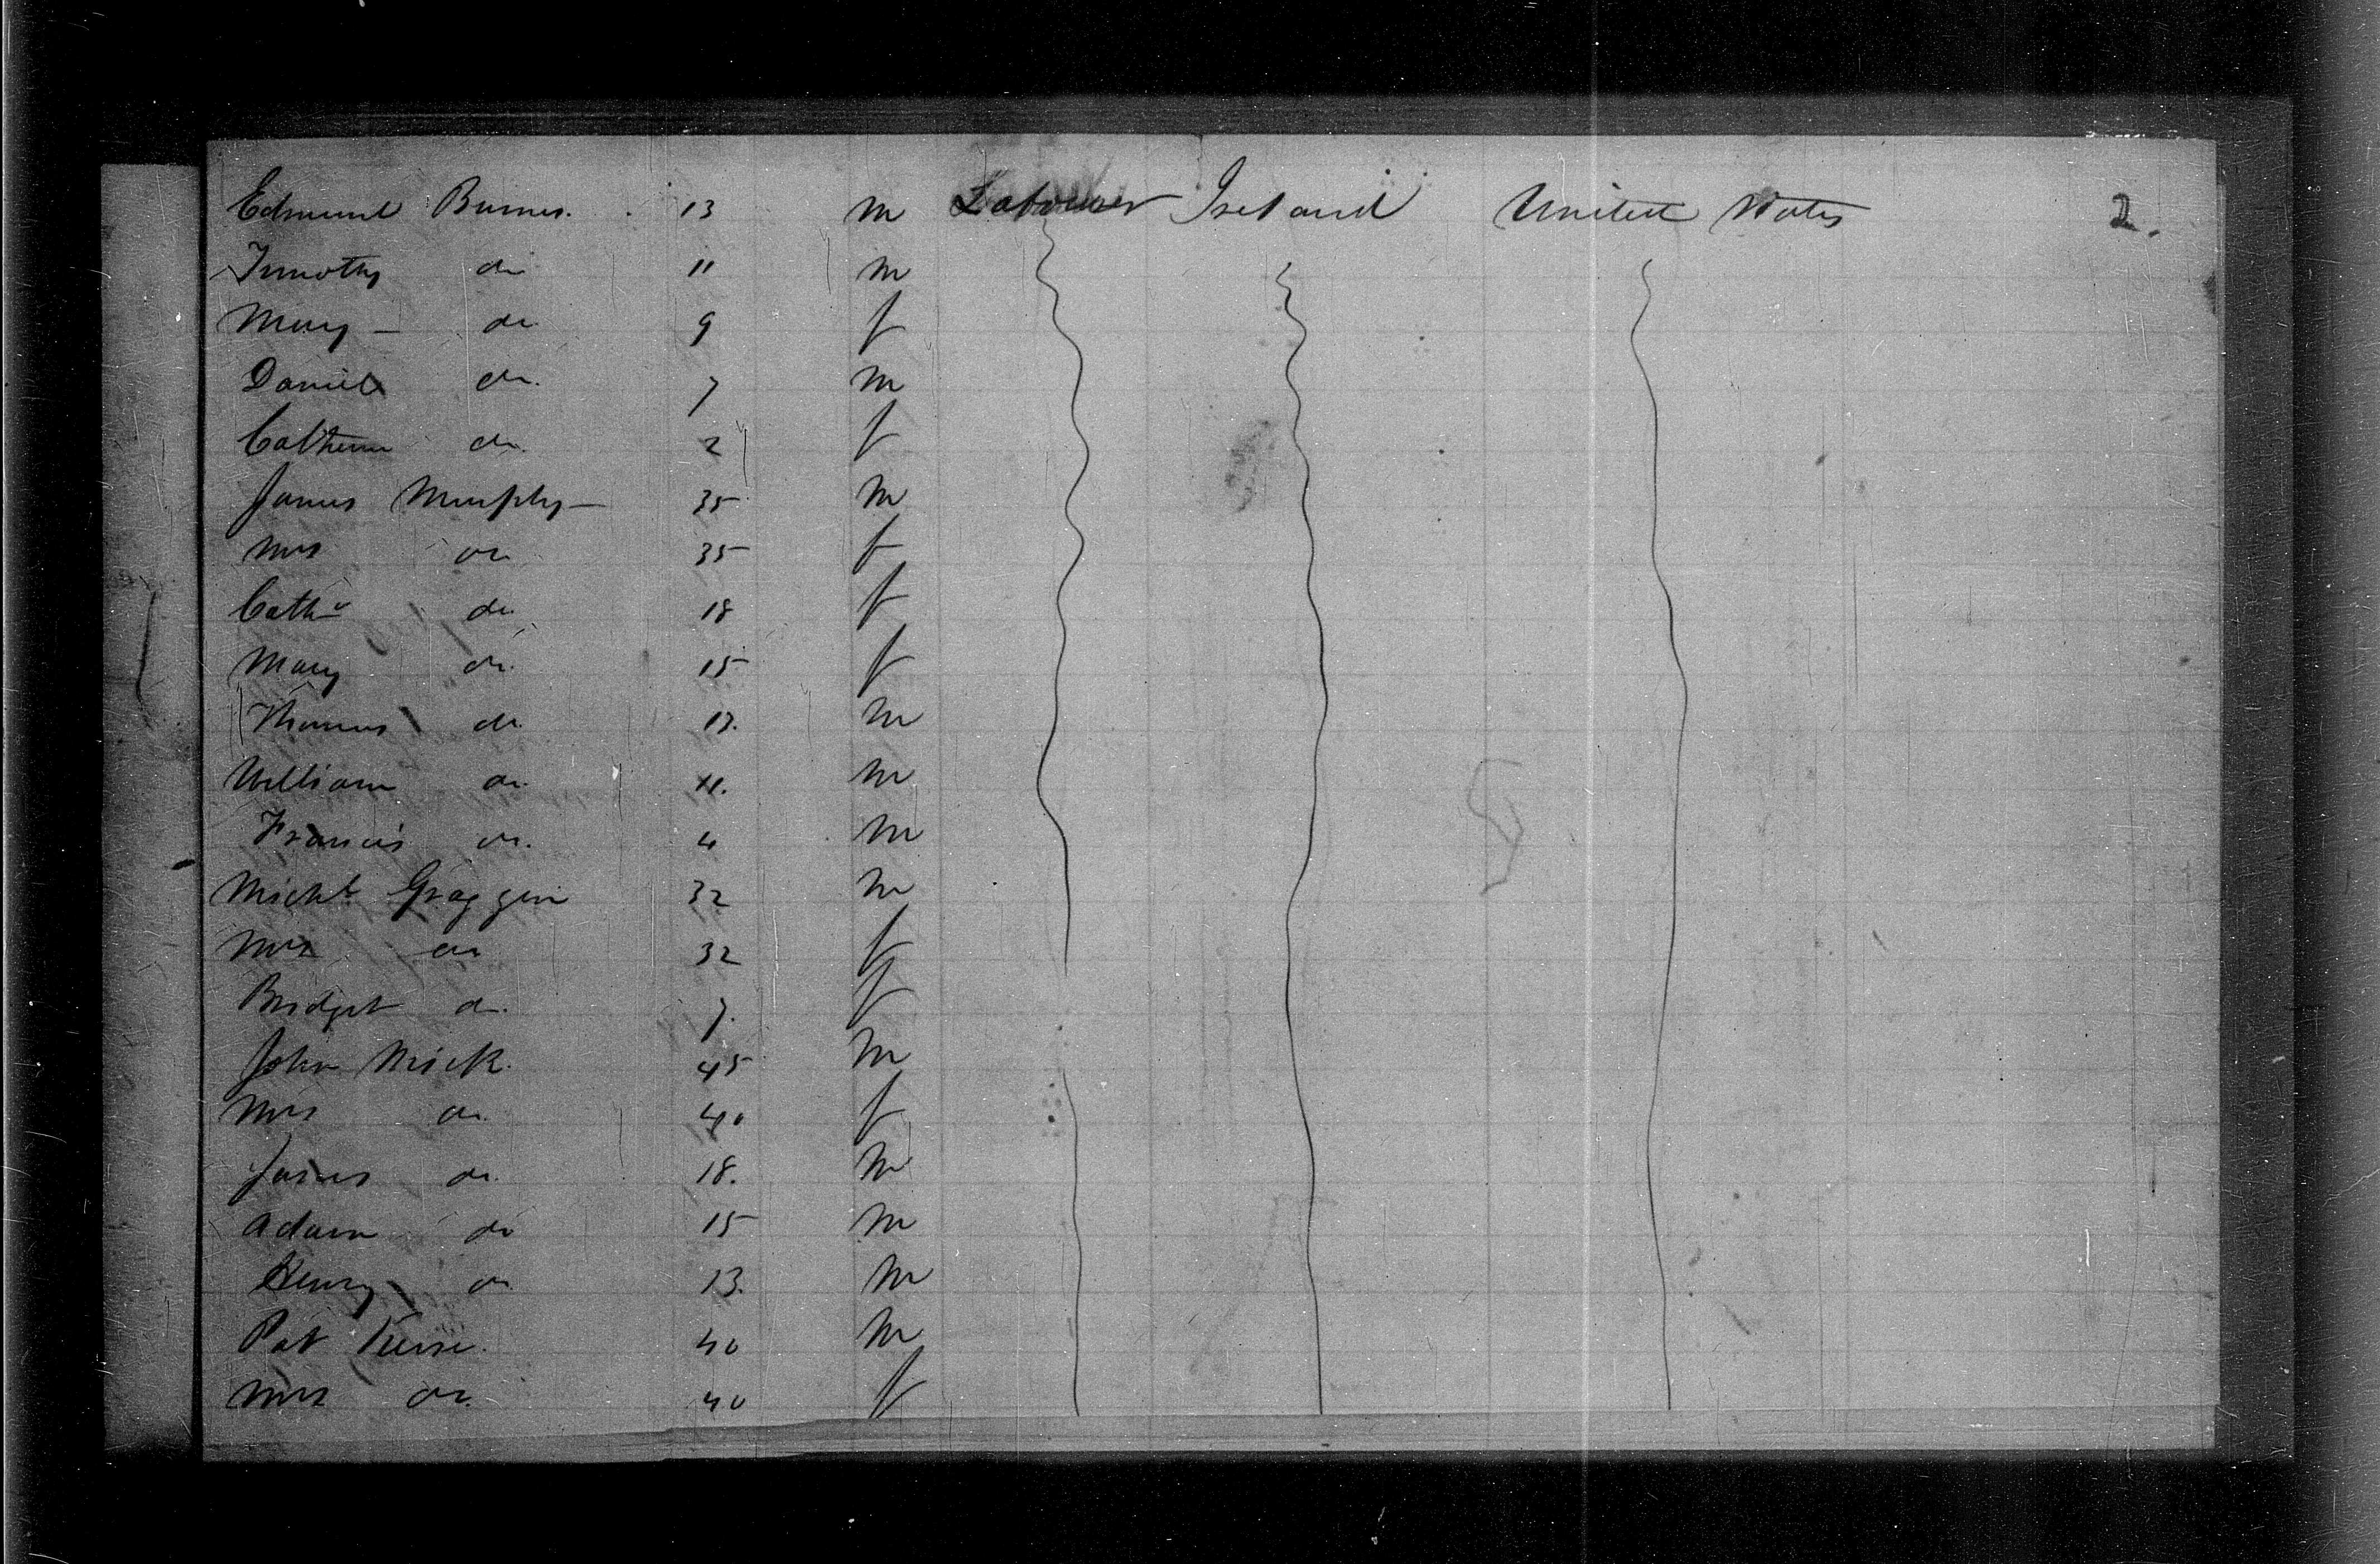 Edmund Burnes. 13 m Labourer Ireland United States 2.
Timothy do 11 m
Mary - do 9 f
Daniel do. 7 m
Catherine do. 2 f
James Murphy - 35 m
Mrs do 35 f
Cath do 18 f
Mary do. 15 f
Thomas do 13. m
William do. 11. m
Francis do. 4 m
Michl Graggin 32 m
Mrs do 32 f
Bridget do. 7. f
John Mick. 45 m
Mrs do. 40 f
James do. 18. m
Adam do 15 m
Henry do 13. m
Pat 40 m
Mrs do. 40 f